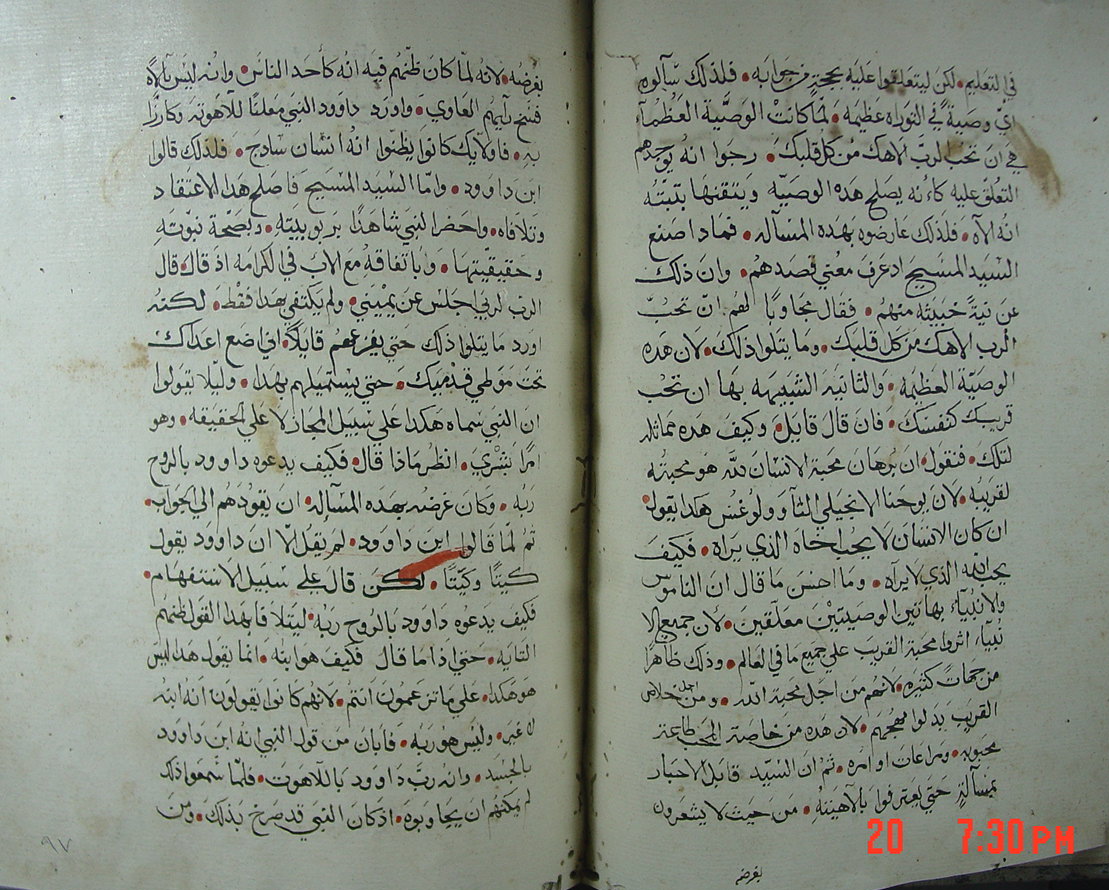 في التعليم • لكن ليتعلقوا عليه بحجة من جوابه • فلذلك سآلوه
اي وصية في التوراه عظيمه • لما كانت الوصية العظمآ
هي ان تحب الرب الاهك من كل قلبك • رجوا انه يوجدهم
التعلق عليه كاءنه يصلح هذه الوصيه ويتقنها بتبتة
انه الآه • فلذلك عارضوه بهده المسأله • فماذا صنع
السيد المسيح اذ عرف معني قصدهم • وان ذلك
عن نية خبيثه منهم • فقال مجاوبا لهم ان تحب
الرب الاهك من كل قلبك • وما يتلوا ذلك • لان هده
الوصية العظيمه • والثانيه الشبيهه بها ان تحب
قريبك كنفسك • فان قال قايل • وكيف هده مماثله
لتلك • فنقول • ان برهان محبة الانسان لله هو محبته
لقريبه • لان يوحنا الانجيلي الثآوولوغس هكدا يقول •
ان كان الانسان لا يحب اخاه الذي يراه • فكيف
يحب الله الذي لا يراه • وما احسن ما قال ان الناموس
والانبيآء بهاتين الوصيتين معلقين • لان جميع الا
نبيآء اثروا محبة القريب علي جميع ما في العالم • وذلك ظاهرا
من جهات كثيره • لانهم من اجل محبة الله • ومن اجل خلاص
القريب بدلوا مهجهم • لان هده من خاصة المحب طاعة
محبوبه • ومراعات اوامره • ثم ان السيد قابل الاحبار
بمسآلة حتي يعترفوا بالاهيته • من حيث لا يشعرون
بغرضه
بغرضه • لانه لما كان ظنهم فيه انه كاحد الناس • وانه ليس بآلاه
فسخ رآيهم الغاوي • واورد داوود النبي معلنا للاهوته وكارزا
به • فاولايك كانوا يظنوا انه انسان سادج • فلدلك قالوا
ابن داوود • واما السيد المسيح فاصلح هدا الاعتقاد
وتلافاه • واحضر النبي شاهدا بربوبيته • وبصحة نبوته
وحقيقيتها • وباتفاقه مع الاب في الكرامه اذ قال • قال
الرب لربي اجلس عن يميني • ولم يكتفي بهدا فقط • لكنه
اورد ما يتلوا ذلك حتي يفزعهم قايلا • اني اضع اعداك
تحت موطي قدميك • حتي يستميلهم بهدا • وليلا يقولوا
ان النبي سماه هكدا علي سبيل المجاز لا علي الحقيقه • وهو
امرا بشري • انظر ماذا قال • فكيف يدعوه داوود بالروح
ربه • وكان غرضه بهده المسآله • ان يقودهم الي الجواب •
ثم لما قالوا ابن داوود • لم يقل لا ان داوود يقول
كيتا وكيتا • لكن قال علي سبيل الاستفهام •
فكيف يدعوه داوود بالروح ربه • ليتلافا بهدا القول ظنهم
التايه • حتي اذا ما قال فكيف هو ابنه • انما يقول هدا ليس
هو هكدا • علي ما تزعمون انتم • لانهم كانوا يقولون انه ابنه
لا غير • وليس هو ربه • فابان من قول النبي انه ابن داوود
بالجسد • وانه رب داوود باللاهوت • فلما سمعوا ذلك
لم يمكنهم ان يجاوبوه • اذ كان النبي قد صرخ بذلك • ومن
٩٧
20 7:30 PM